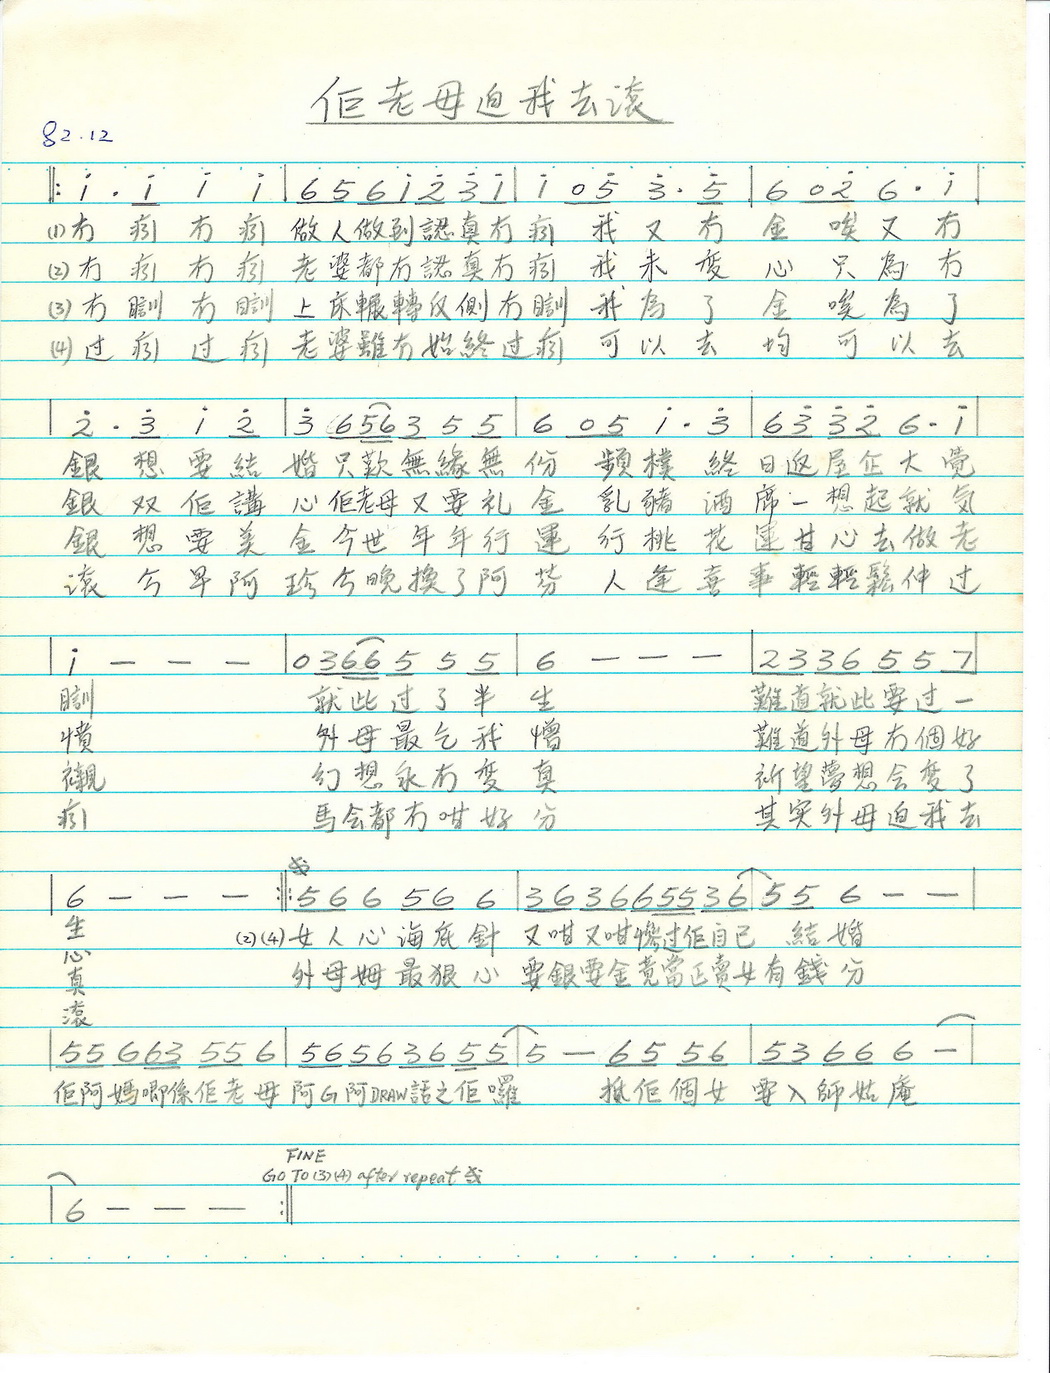 佢老母迫我去滾
82.12
‖: i . i i i | 6 5 6 i 2 3 i | i 0 5 3 . 5 | 6 0 2 6 . i |
(1) 冇 癮 冇 癮 做人做到認真冇癮 我又冇 金唉又冇
(2) 冇 癮 冇 癮 老婆都冇認真冇癮 我未變 心只為冇
(3) 冇 瞓 冇 瞓 上床輾轉反側冇瞓 我為了 金唉為了
(4) 过 癮 过 癮 老婆雖冇始終过癮 可以去 均可以去
| 2 . 3 i 2 | 3 6 5 6 3 5 5 | 6 0 5 i . 3 | 6 3 3 2 6 . i |
銀想要結 婚只歎無緣無 份頻樸終 日返屋企大覺
銀双佢講 心佢老母又要礼 金乳豬酒 席一想起就気
銀想要美 金今世年年行 運行桃花 運甘心去做老
滾今早阿 珍今晚換了阿 芬人逢喜 事輕輕鬆伸过
| i — — — | 0 3 6 6 5 5 5 | 6 — — — | 2 3 3 6 5 5 7 |
瞓 就此过了半 生 難道就此要过一
憤 外母最乞我 憎 難道外母冇個好
襯 幻想永冇變 真 祈望夢想会變了
癮 馬会都冇咁好 分 其实外母迫我去
| 6 — — — :‖: 5 6 6 5 6 6 | 3 6 3 6 6 5 5 3 6 | 5 5 6 — — |
生 (2)(4) 女人心海底針 又咁又咁慘过佢自己 結婚
心 外母姆最狠心 要銀要金竟當正賣女有錢分
真
滾
| 5 5 6 6 3 5 5 6 | 5 6 5 6 3 6 5 5 | 5 — 6 5 5 6 | 5 3 6 6 6 — |
佢阿媽唧係佢老母 阿G阿DRAW話之佢囉 佢個女 要入師姑庵
FINE
GO TO (3)(4) after repeat
| 6 — — — :‖